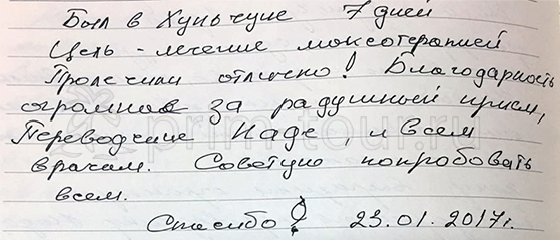 Был в Хуньчуне 7 дней
Цель - лечение моксотерапией
Пролечили отлично! Благодарность
огромная за радушный прием,
Переводчице Наде, и всем
врачам. Советую попробовать
всем.
Спасибо! 23.01.2017г.
prim-tour.ru